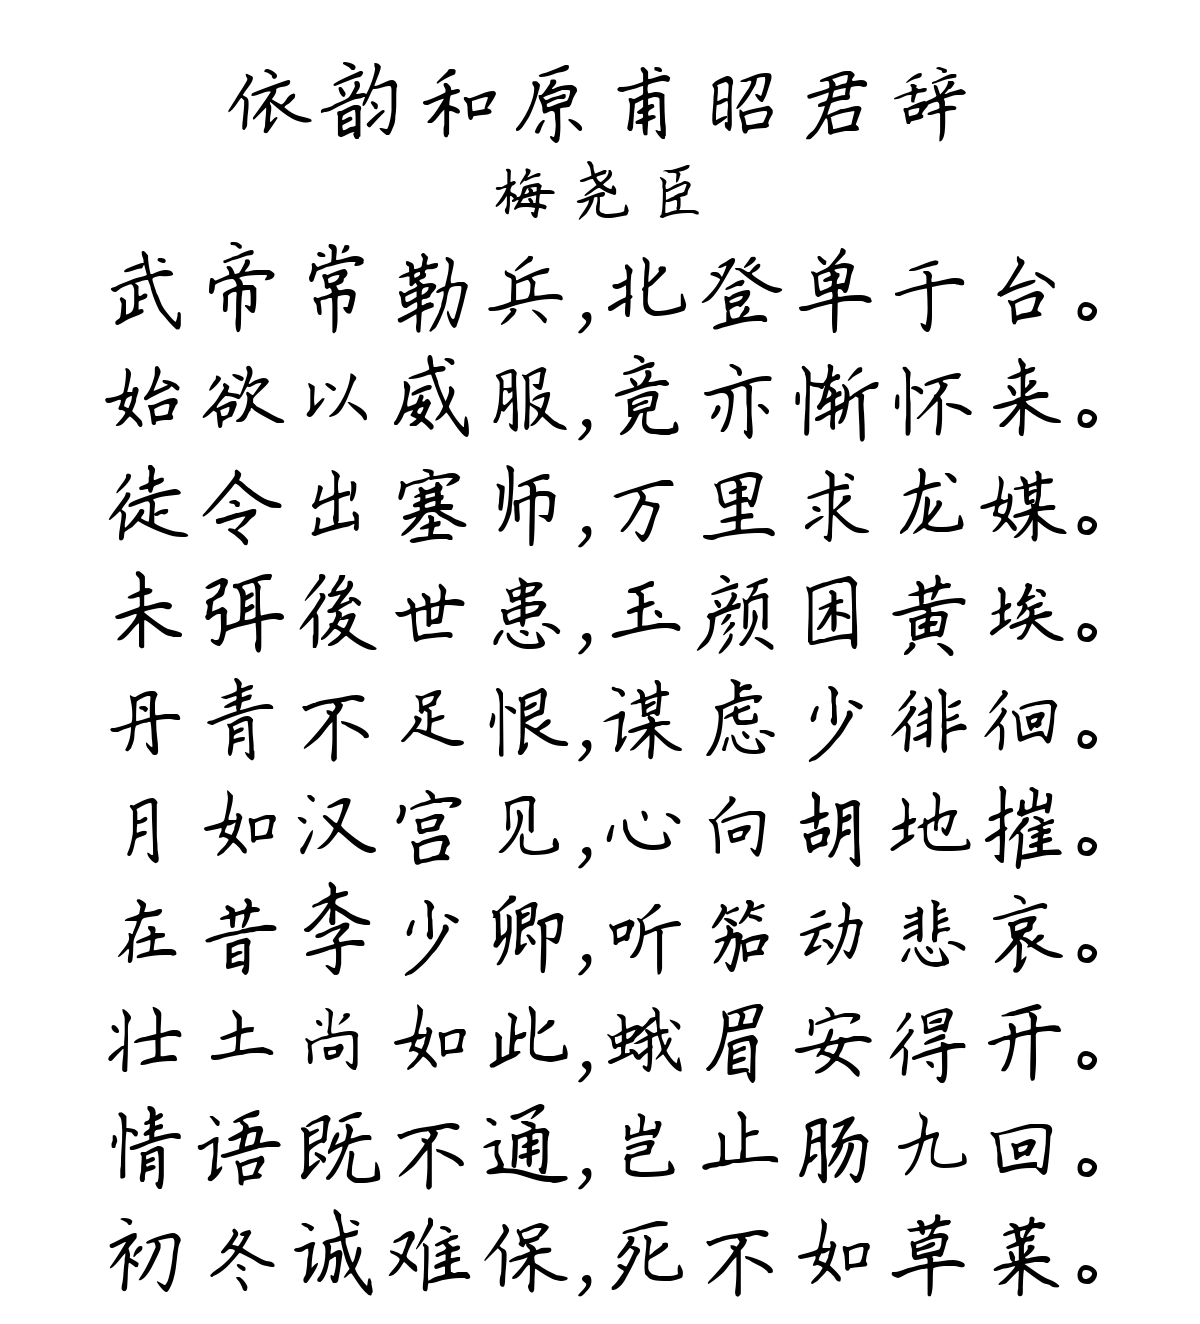 依韵和原甫昭君辞
梅尧臣
武帝常勒兵,北登单于台。
始欲以威服,竟亦惭怀来。
徒令出塞师,万里求龙媒。
未弭後世患,玉颜困黄埃。
丹青不足恨,谋虑少徘徊。
月如汉宫见,心向胡地摧。
在昔李少卿,听笳动悲哀。
壮士尚如此,蛾眉安得开。
情语既不通,岂止肠九回。
初冬诚难保,死不如草莱。